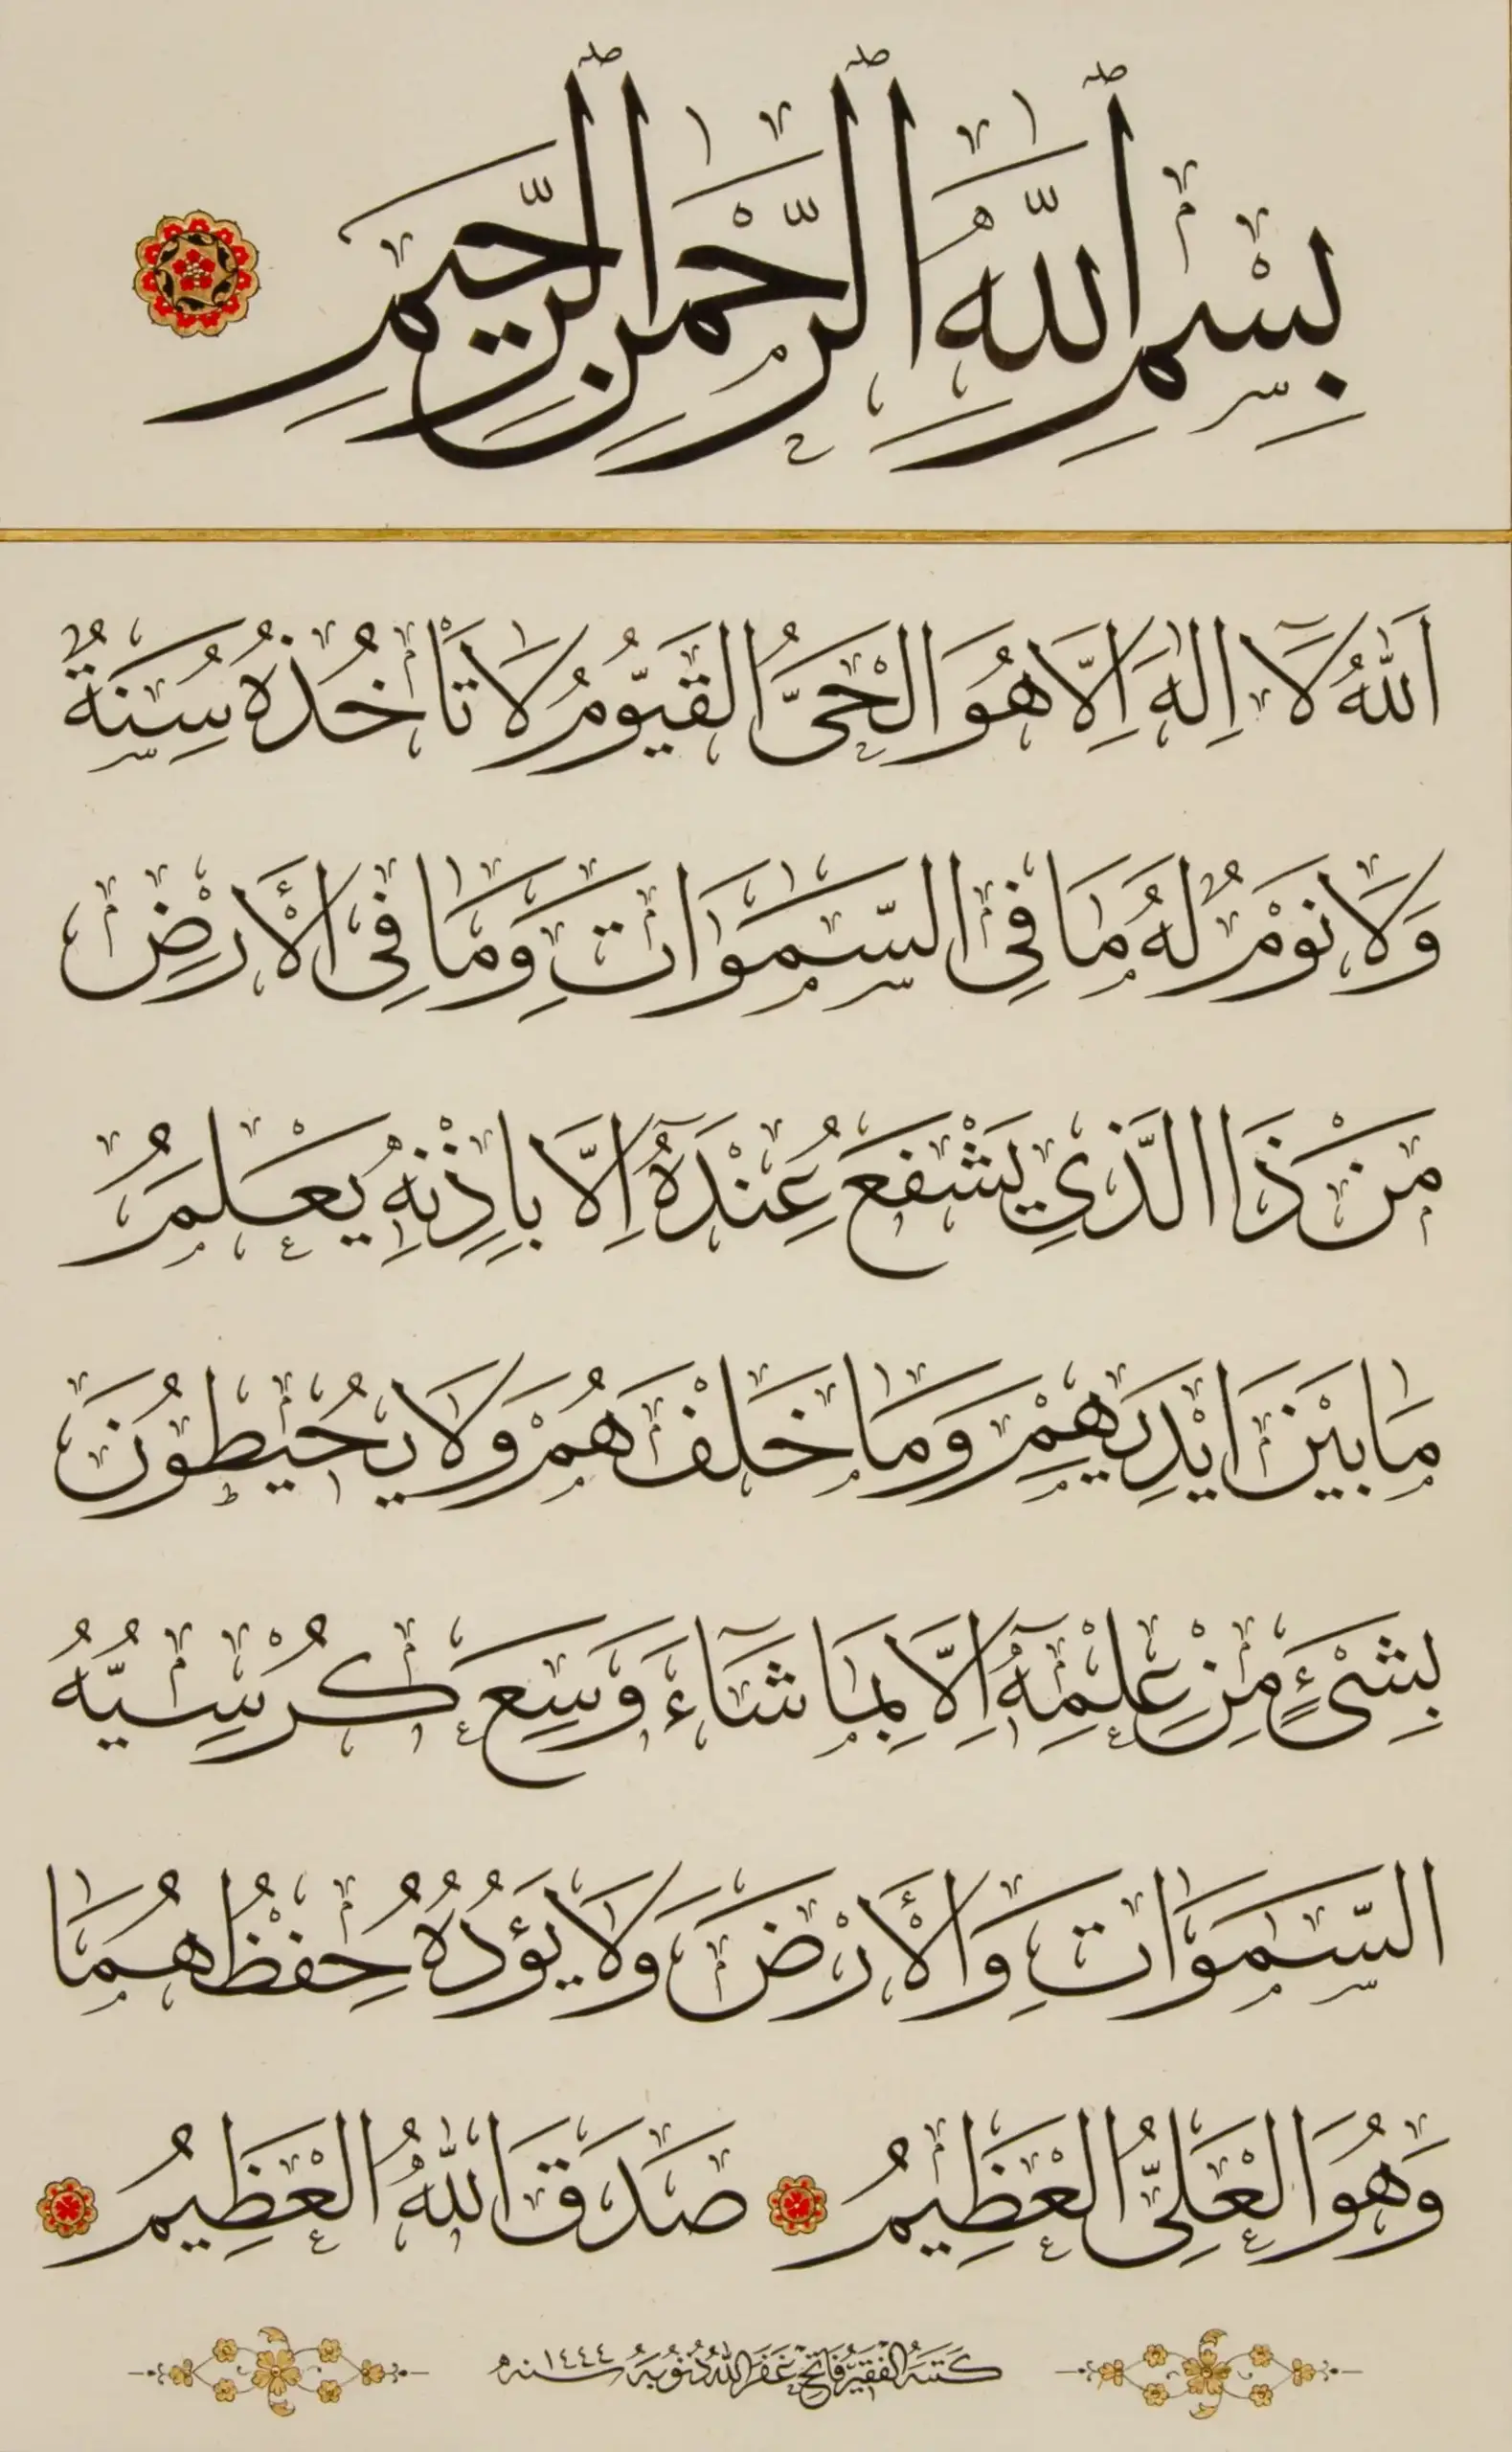 بِسْمِ ٱللَّهِ ٱلرَّحْمٰنِ ٱلرَّحِيمِ
اَللّٰهُ لَآ اِلٰهَ اِلَّا هُوَ الْحَىُّ الْقَيُّومُ لَا تَأْخُذُهُ سِنَةٌ
وَلَا نَوْمٌ لَهُ مَا فِى السَّمٰوَاتِ وَمَا فِى الْأَرْضِ
مَنْ ذَا الَّذِى يَشْفَعُ عِنْدَهُٓ اِلَّا بِاِذْنِهِ يَعْلَمُ
مَا بَيْنَ اَيْدِيهِمْ وَمَا خَلْفَهُمْ وَلَا يُحِيطُونَ
بِشَىْءٍ مِنْ عِلْمِهِٓ اِلَّا بِمَا شَآءَ وَسِعَ كُرْسِيُّهُ
السَّمٰوَاتِ وَالْأَرْضَ وَلَا يَؤُدُهُ حِفْظُهُمَا
وَهُوَ الْعَلِىُّ الْعَظِيمُ صَدَقَ اللّٰهُ الْعَظِيمُ
كَتَبَهُ الْفَقِيرُ فَاتِحْ غَفَرَ اللّٰهُ ذُنُوبَهُ سنه ١٤٤٤